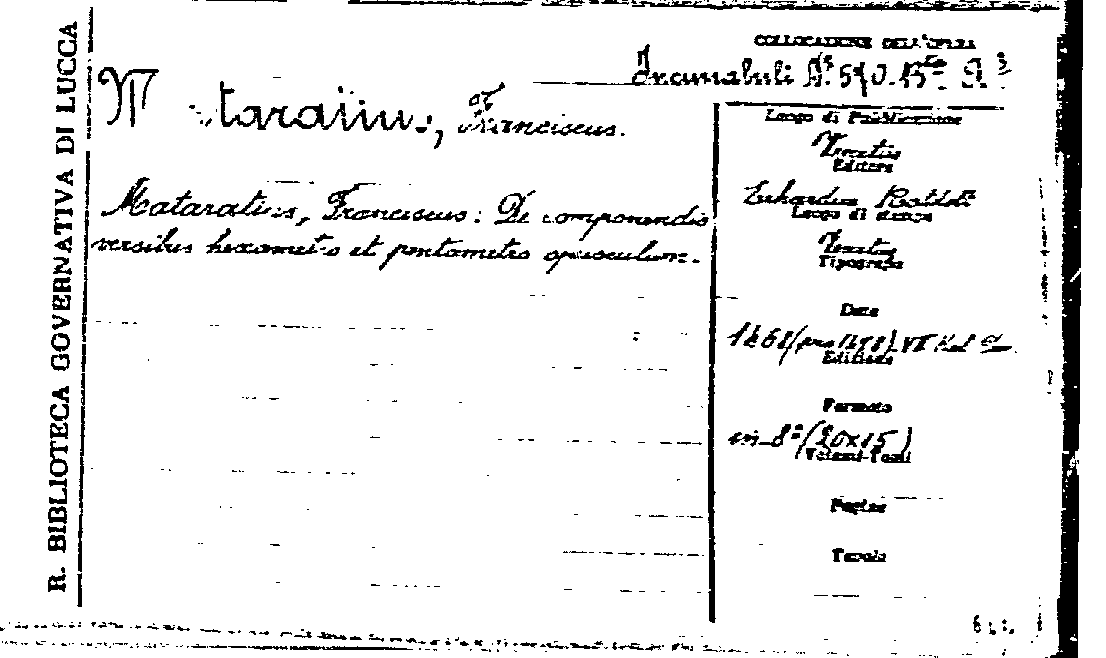 R. BIBLIOTECA GOVERNATIVA DI LUCCA
COLLOCAZIONE DELL'OPERA
Incunabuli
Franciscus.
Mataratius, Franciscus: De componendis
versibus hexametro et pentametro opusculum.
Luogo di Pubblicazione
Venetiis
Editore
Erhardus Ratdolt
Luogo di stampa
Venetiis
Tipografo
Data
1468
Edizione
Formato
in-8º (20x15)
Volumi-Tomi
Pagine
Tavole